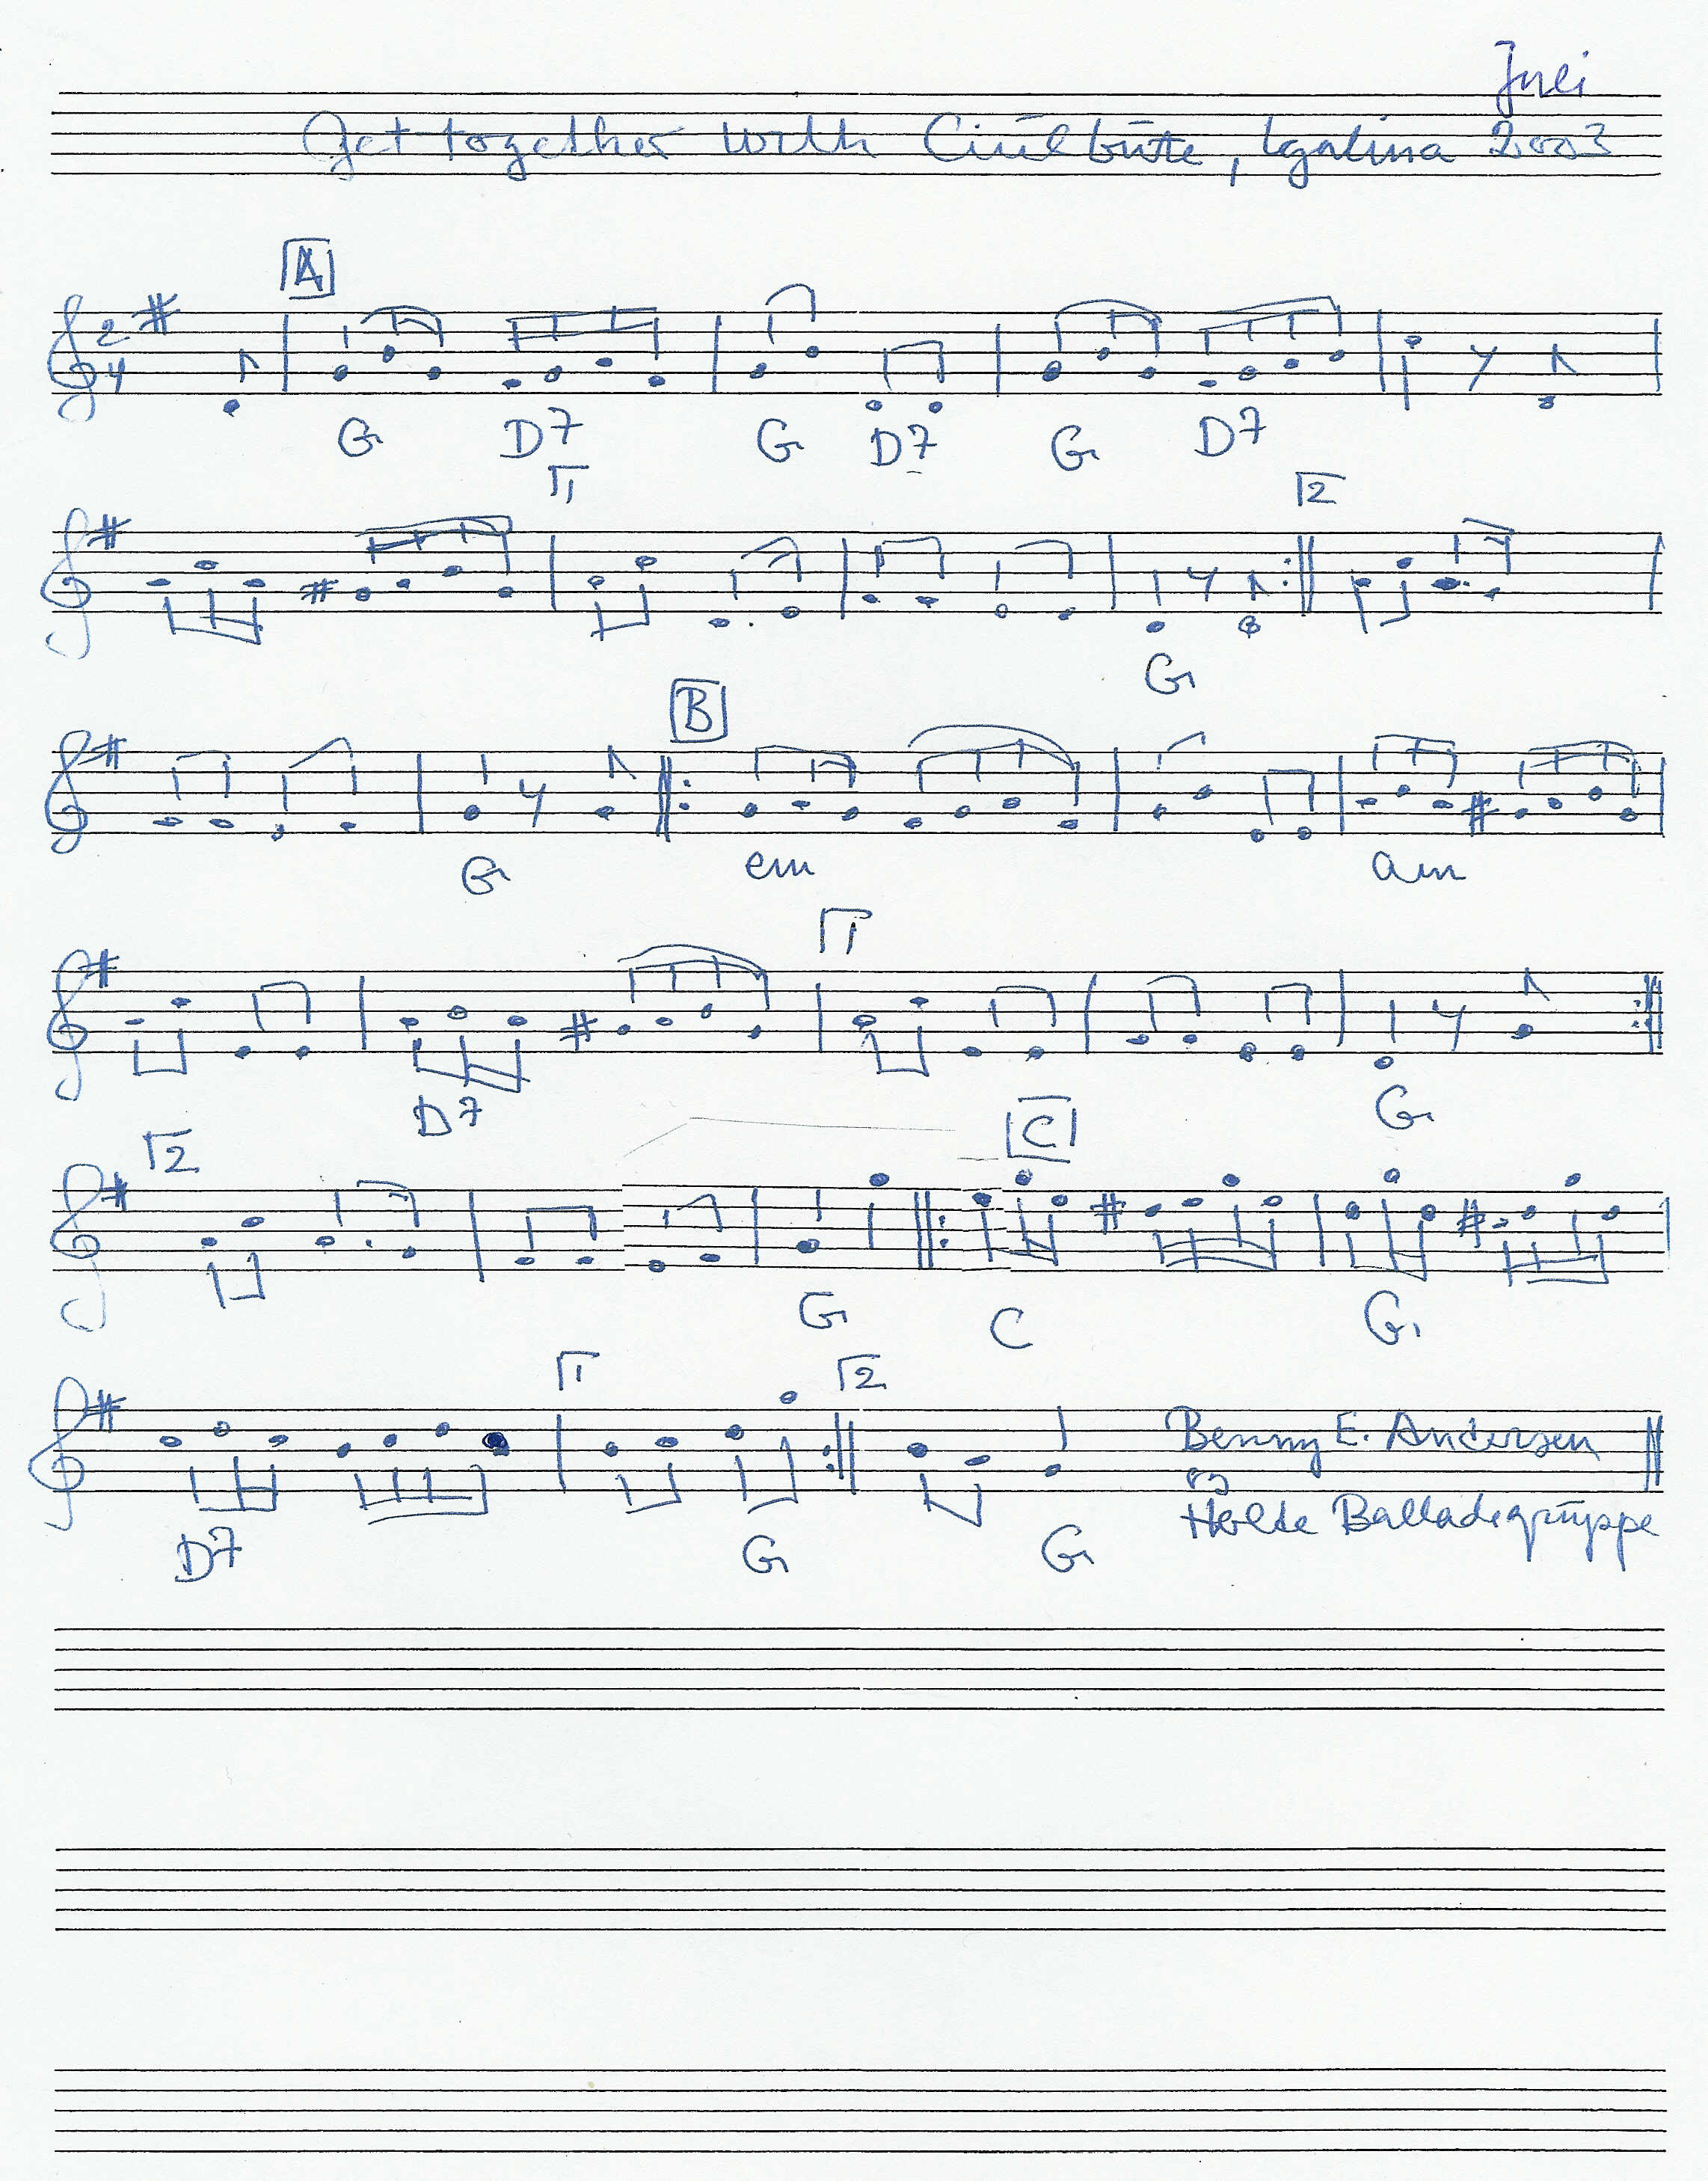 Juli
Get together with Ciūlbūtė, Igalina 2003
A
2
4
G D7 G D7 G D7
1 2
G
B
G em am
1
D7 G
2 C
G C G
1 2
D7 G G
Benny E. Andersen
og
Holte Balladegruppe